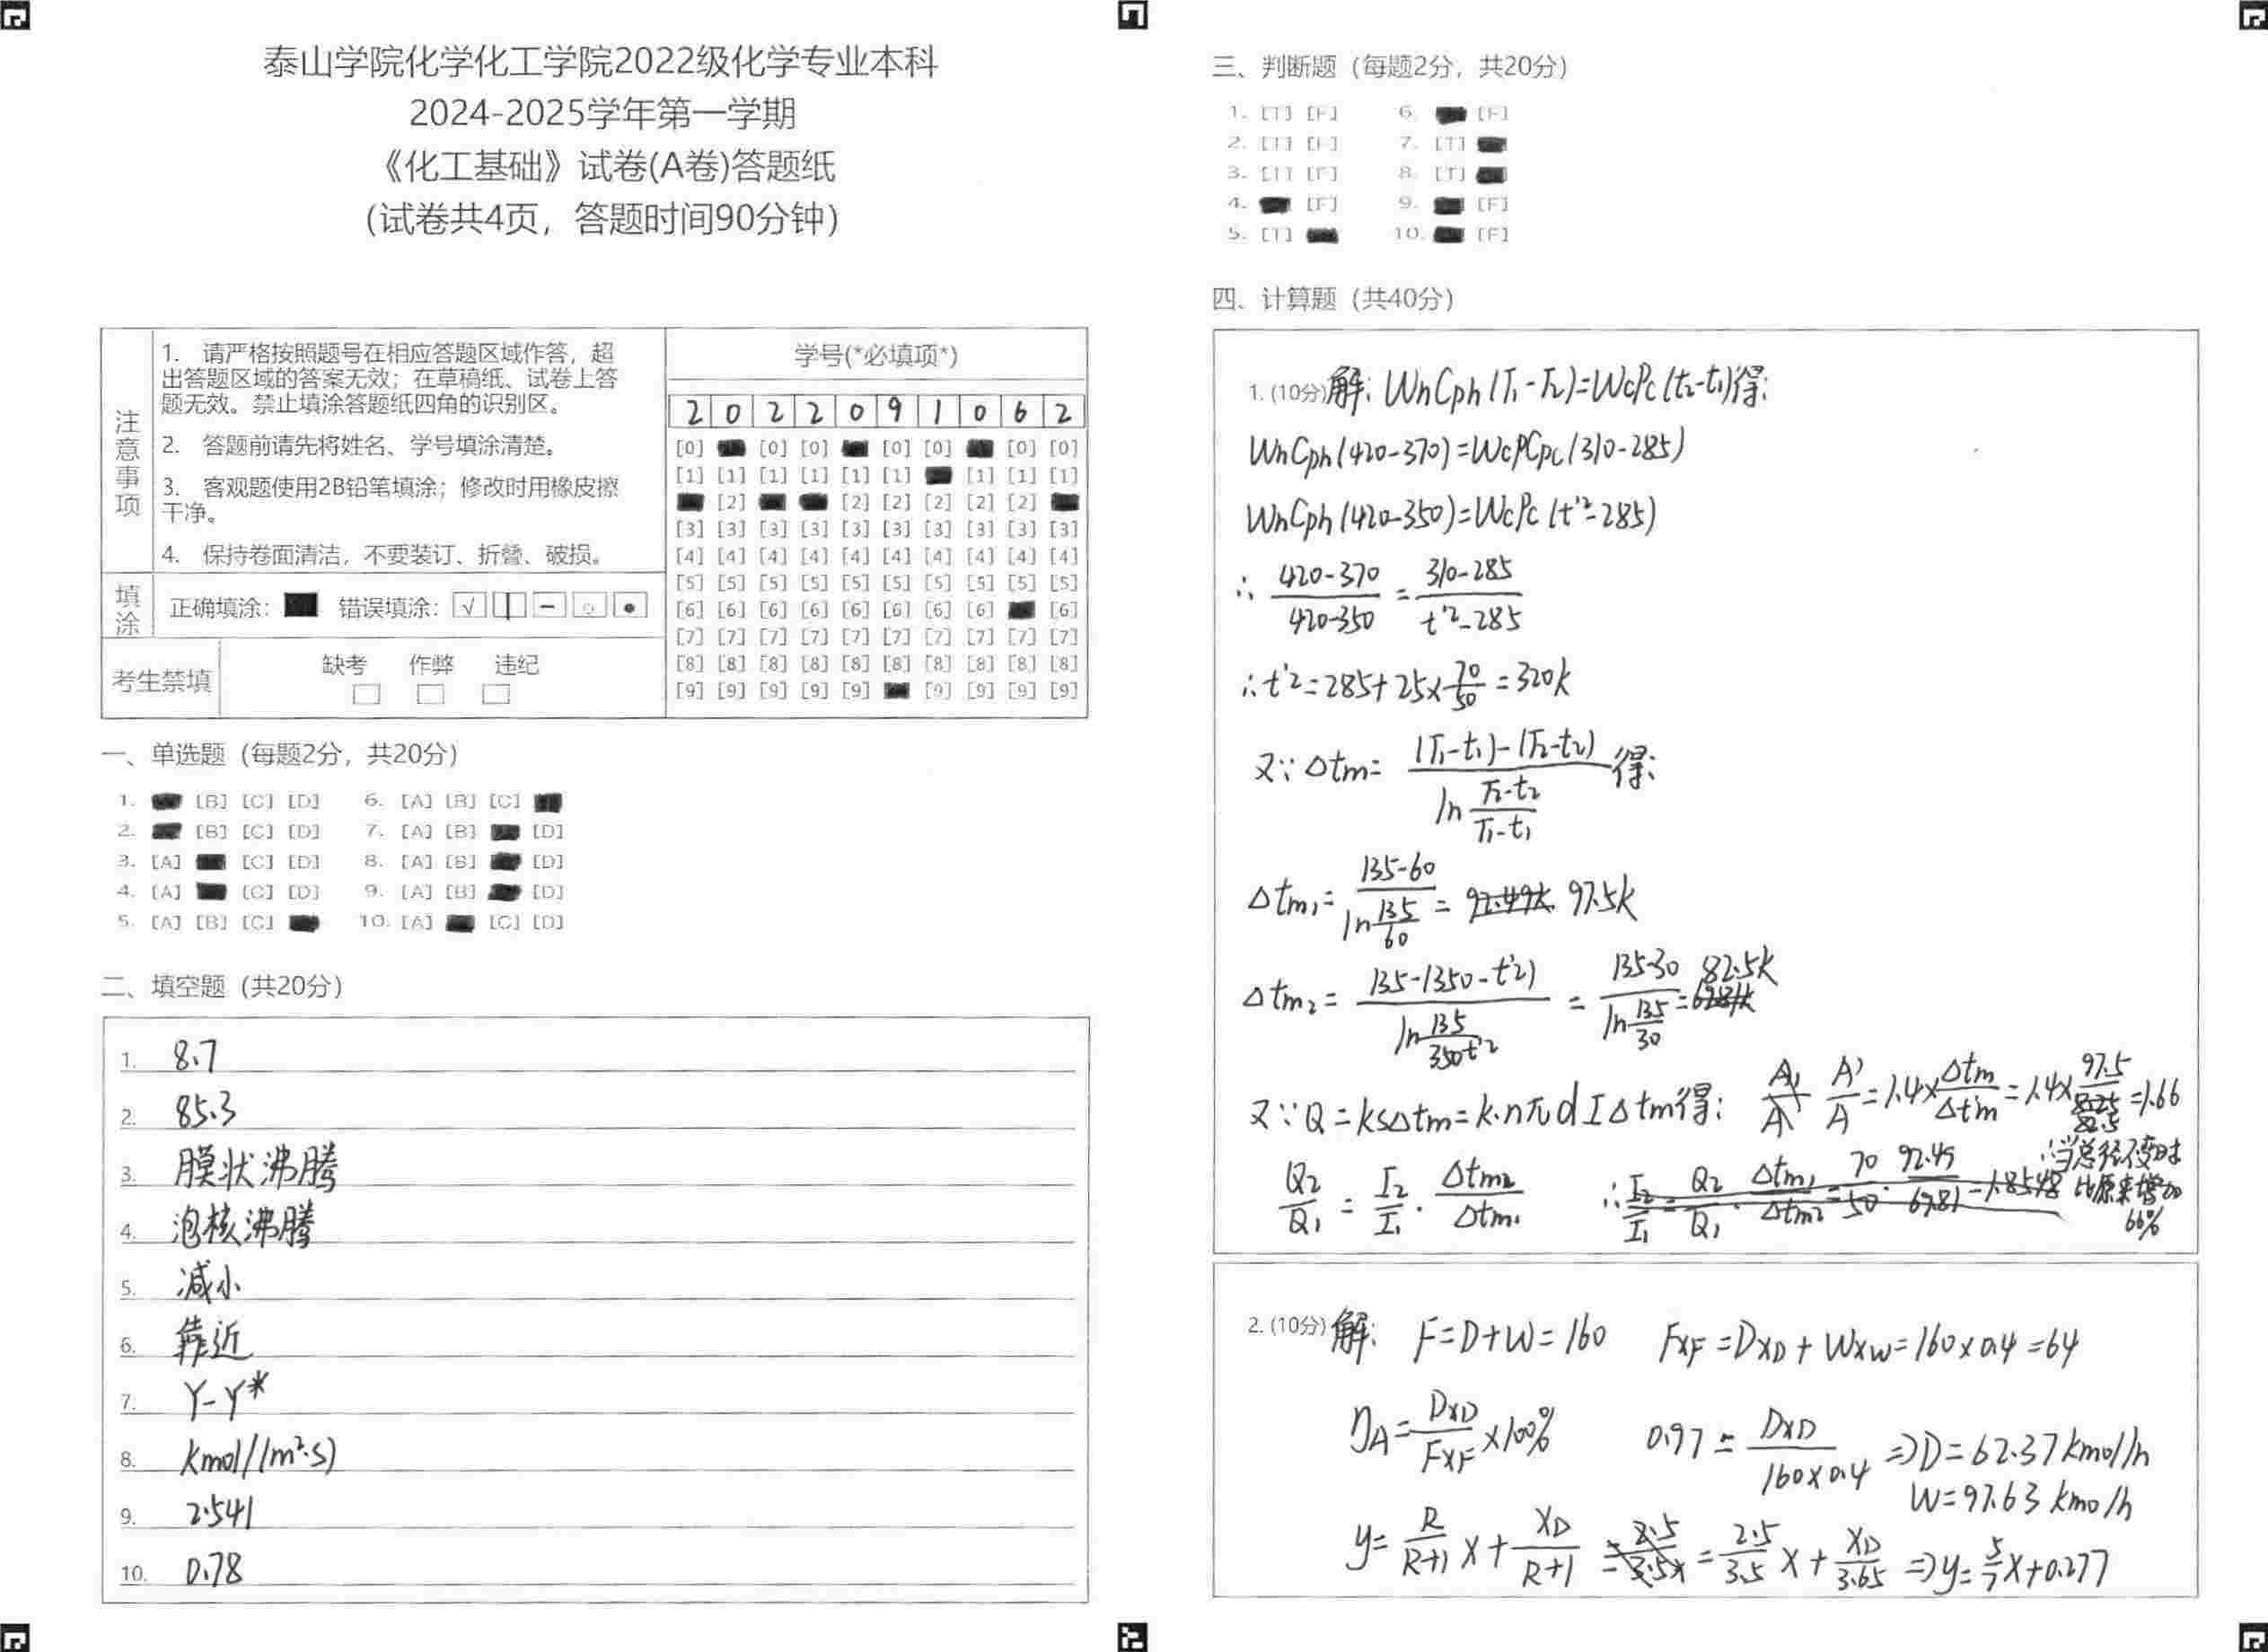 泰山学院化学化工学院2022级化学专业本科
2024-2025学年第一学期
《化工基础》试卷(A卷)答题纸
(试卷共4页，答题时间90分钟)
注意事项
1. 请严格按照题号在相应答题区域作答，超
出答题区域的答案无效；在草稿纸、试卷上答
题无效。禁止填涂答题纸四角的识别区。
2. 答题前请先将姓名、学号填涂清楚。
3. 客观题使用2B铅笔填涂；修改时用橡皮擦
干净。
4. 保持卷面清洁，不要装订、折叠、破损。
填涂
正确填涂： 错误填涂：
考生禁填
缺考 作弊 违纪
学号(*必填项*)
2 0 2 2 0 9 1 0 6 2
[0] [0] [0] [0] [0] [0] [0]
[1] [1] [1] [1] [1] [1] [1] [1] [1]
[2] [2] [2] [2] [2] [2]
[3] [3] [3] [3] [3] [3] [3] [3] [3] [3]
[4] [4] [4] [4] [4] [4] [4] [4] [4] [4]
[5] [5] [5] [5] [5] [5] [5] [5] [5] [5]
[6] [6] [6] [6] [6] [6] [6] [6] [6]
[7] [7] [7] [7] [7] [7] [7] [7] [7] [7]
[8] [8] [8] [8] [8] [8] [8] [8] [8] [8]
[9] [9] [9] [9] [9] [9] [9] [9] [9]
一、单选题（每题2分，共20分）
1. [B] [C] [D] 6. [A] [B] [C]
2. [B] [C] [D] 7. [A] [B] [D]
3. [A] [C] [D] 8. [A] [B] [D]
4. [A] [C] [D] 9. [A] [B] [D]
5. [A] [B] [C] 10. [A] [C] [D]
二、填空题（共20分）
1. 8.7
2. 85.3
3. 膜状沸腾
4. 泡核沸腾
5. 减小
6. 靠近
7. Y-Y*
8. kmol/(m²·s)
9. 2.541
10. 0.78
三、判断题（每题2分，共20分）
1. [T] [F] 6. [F]
2. [T] [F] 7. [T]
3. [T] [F] 8. [T]
4. [F] 9. [F]
5. [T] 10. [F]
四、计算题（共40分）
1. (10分) 解: WnCph(T₁-T₂)=WcPc(t₂-t₁)得:
WnCph(420-370)=WcPCpc(310-285)
WnCph(420-350)=WcPc(t'2-285)
∴ (420-370)/(420-350) = (310-285)/(t'2-285)
∴t'2=285+25×70/50=320k
又∵ Δtm= ((T₁-t₁)-(T₂-t₂))/(ln (T₂-t₂)/(T₁-t₁)) 得:
Δtm₁= (135-60)/(ln 135/60) = 97.5k
Δtm₂= (135-(350-t'2))/(ln 135/350t'2) = (135-30)/(ln 135/30) = 82.5k
又∵Q=KSΔtm=k·nπdIΔtm得: A'/A=1.4×Δtm/Δt'm=1.4×97.5/82.5=1.66
Q₂/Q₁ = I₂/I₁ · Δtm₂/Δtm₁ ∴I₂/I₁=Q₂/Q₁·Δtm₁/Δtm₂=70/50·92.49/69.81
比原来增加
66%
2. (10分) 解: F=D+W=160 FxF=DxD+WxW=160×0.4=64
ηA=DxD/FxF×100% 0.97=DxD/(160×0.4) ⇒D=62.37kmol/h
W=97.63 kmo/h
y=R/(R+1) x+xD/(R+1) =2.5/3.5 x+xD/3.65 ⇒y=5/7x+0.277